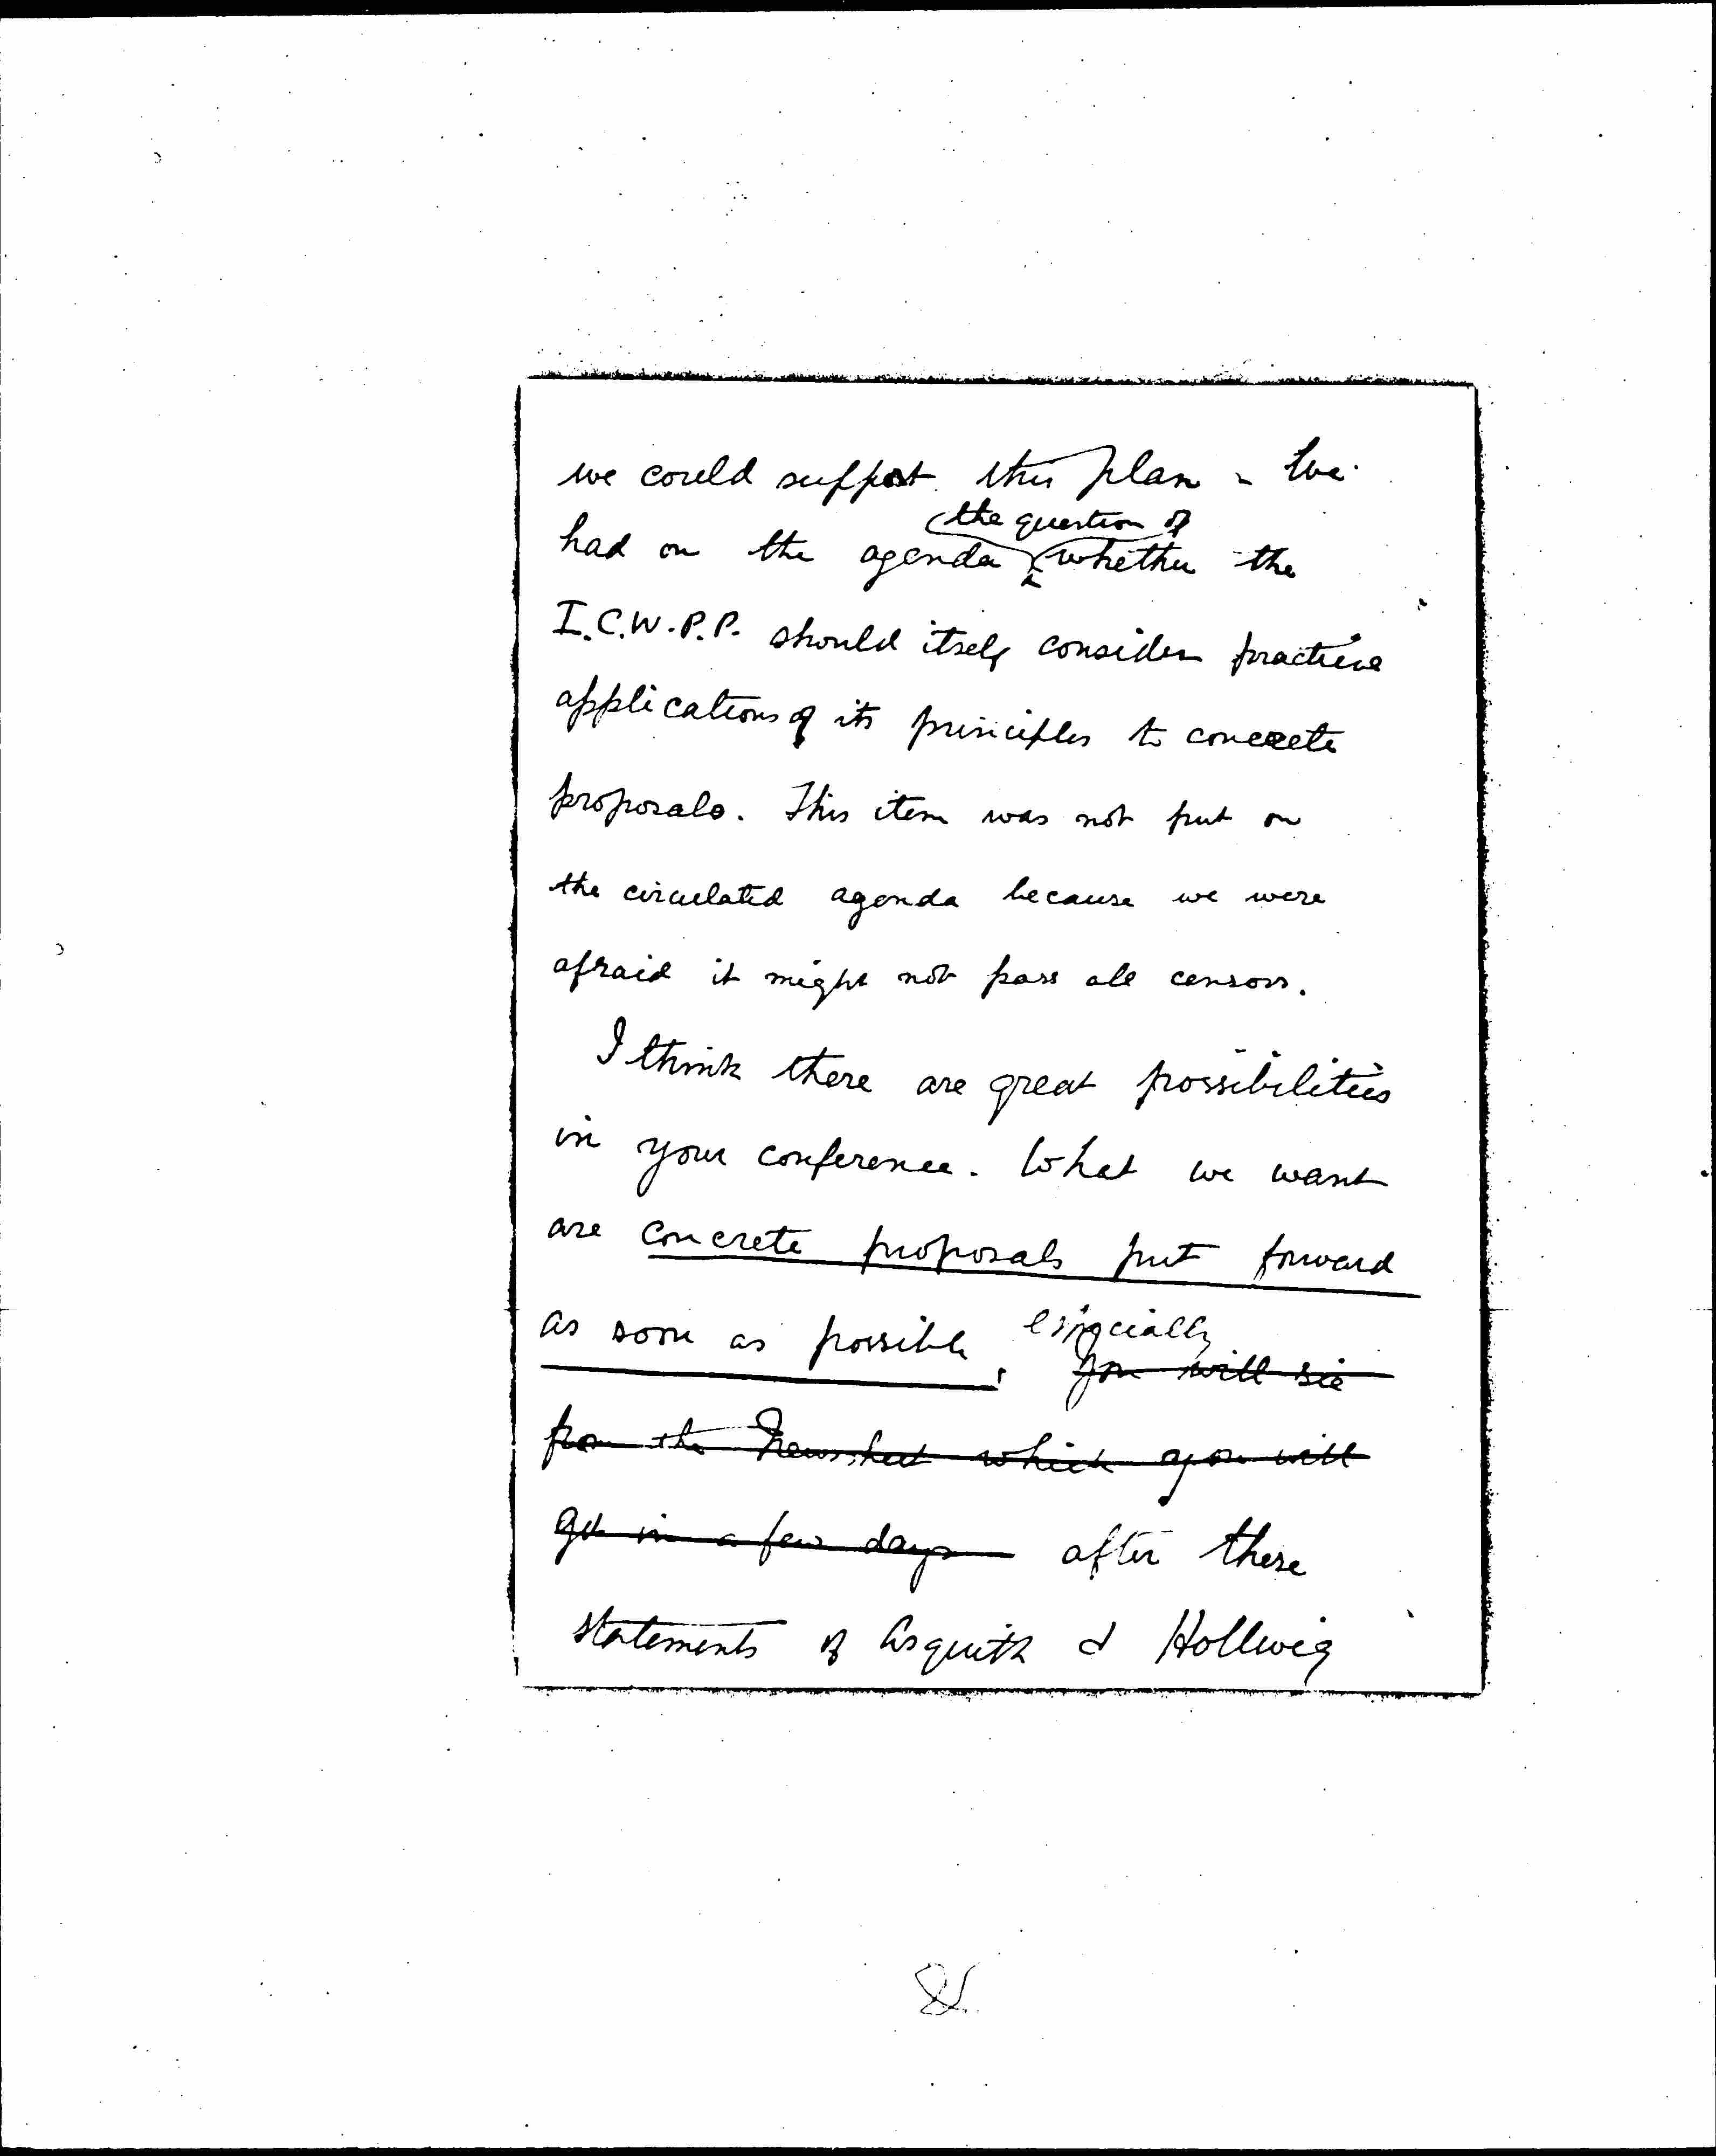 we could support this plan - We
the question of
had on the agenda whether the
I.C.W.P.P. should itself consider practical
applications of its principles to concrete
proposals. This item was not put on
the circulated agenda because we were
afraid it might not pass all censors.
I think there are great possibilities
in your conference. What we want
are concrete proposals put forward
as soon as possible, especially
you will see
from the Newssheet which you will
get in a few days after these
statements of Asquith & Hollweg